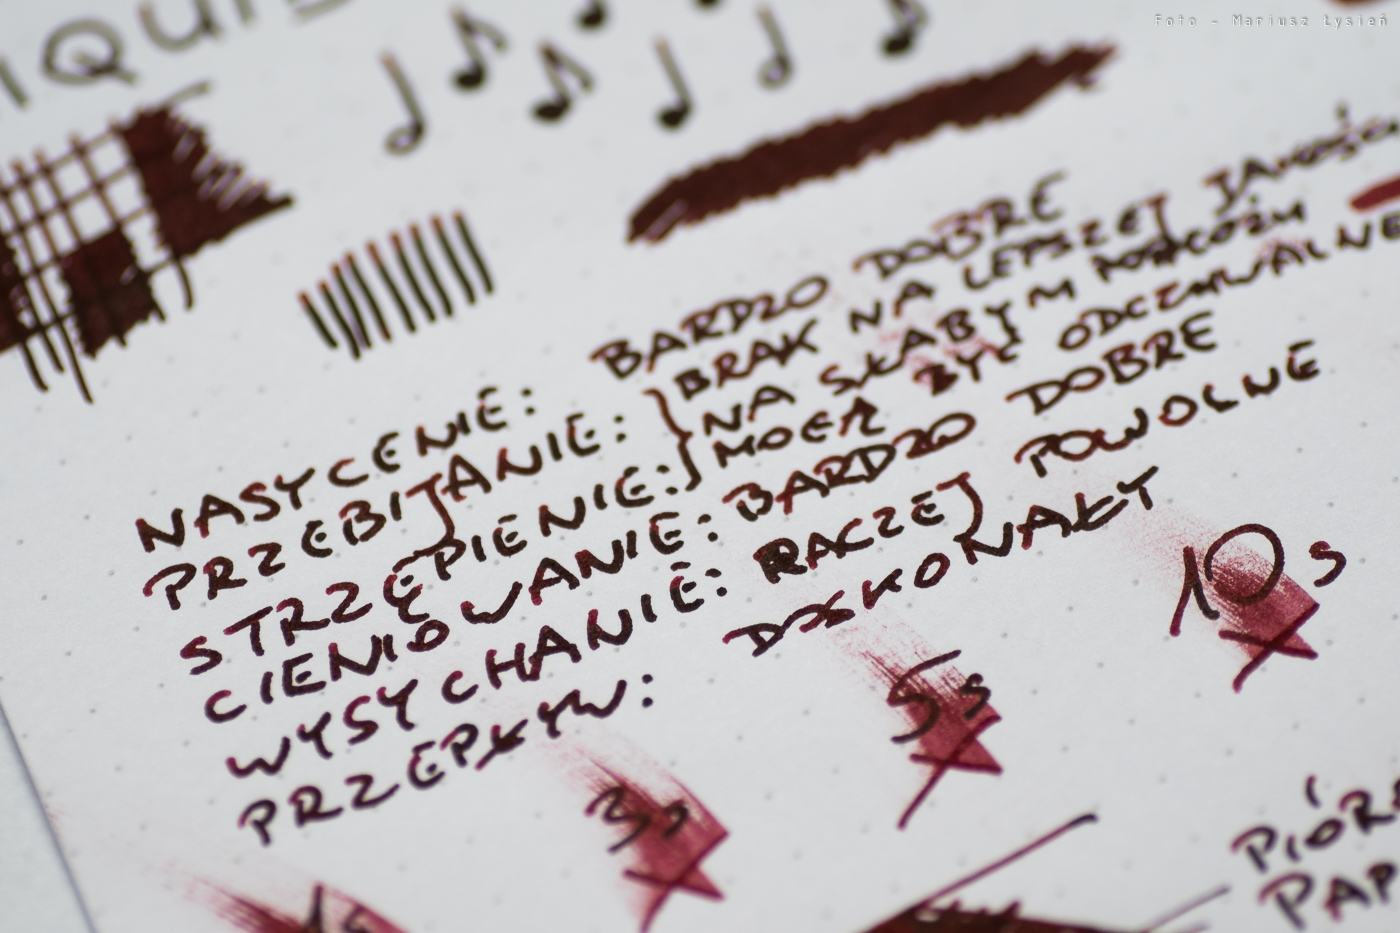 Foto - Mariusz Łysień
IQUI
NASYCENIE: BARDZO DOBRE
PRZEBIJANIE: } BRAK NA LEPSZEJ
STRZĘPIENIE: } NA SŁABYM
MOGĄ BYĆ ODCZUWALNE
CIENIOWANIE: BARDZO DOBRE
WYSYCHANIE: RACZEJ POWOLNE
PRZEPŁYW: DOSKONAŁY
10s
5s
3s
1s
PIÓR
PAP